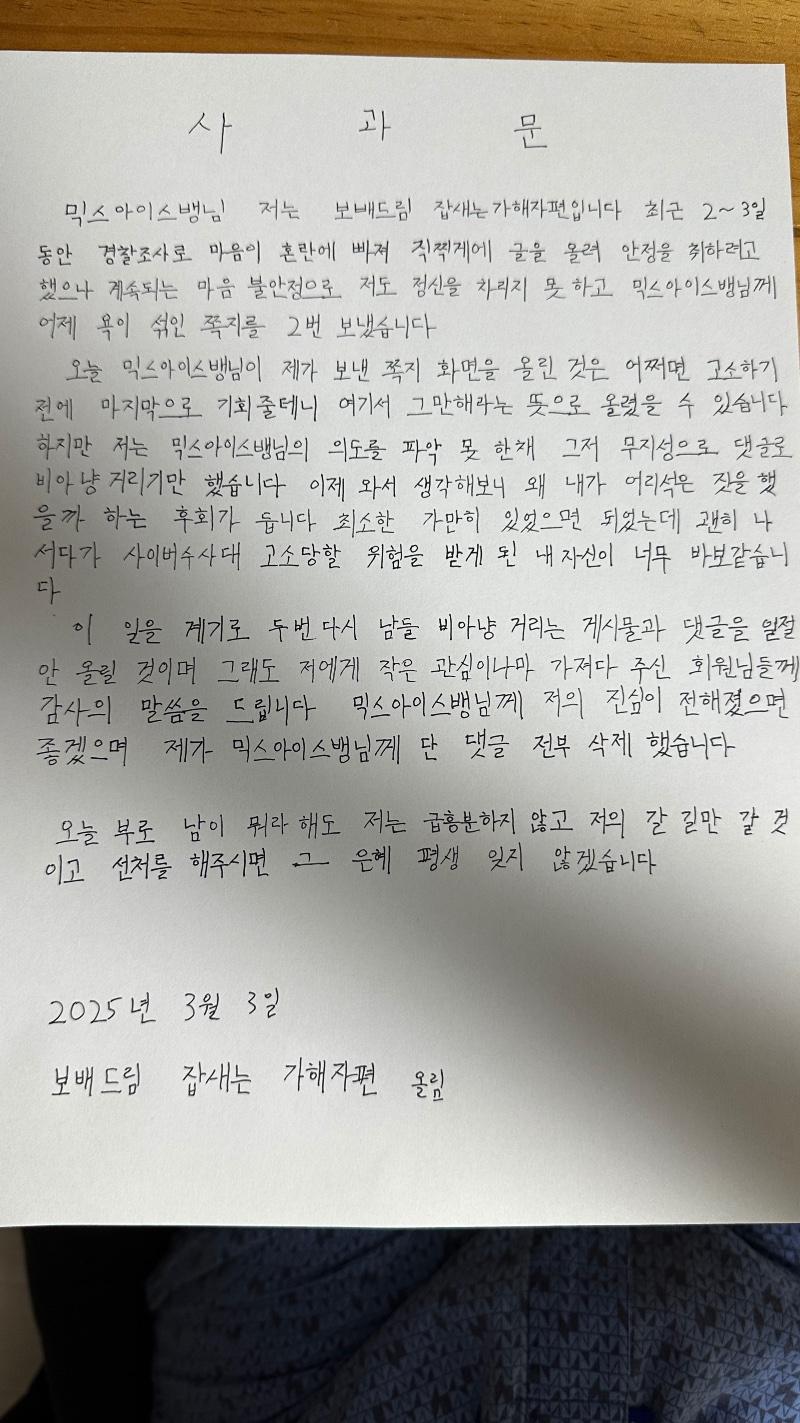 사 과 문
믹스아이스뱅님 저는 보배드림 잡새는가해자편입니다 최근 2~3일
동안 경찰조사로 마음이 혼란에 빠져 직찍게에 글을 올려 안정을 취하려고
했으나 계속되는 마음 불안정으로 저도 정신을 차리지 못 하고 믹스아이스뱅님께
어제 욕이 섞인 쪽지를 2번 보냈습니다
오늘 믹스아이스뱅님이 제가 보낸 쪽지 화면을 올린 것은 어쩌면 고소하기
전에 마지막으로 기회줄테니 여기서 그만해라는 뜻으로 올렸을 수 있습니다
하지만 저는 믹스아이스뱅님의 의도를 파악 못 한채 그저 무지성으로 댓글로
비아냥거리기만 했습니다 이제 와서 생각해보니 왜 내가 어리석은 짓을 했
을까 하는 후회가 듭니다 최소한 가만히 있었으면 되었는데 괜히 나
서다가 사이버수사대 고소당할 위험을 받게 된 내자신이 너무 바보같습니
다
이 일을 계기로 두번다시 남들 비아냥 거리는 게시물과 댓글을 일절
안 올릴 것이며 그래도 저에게 작은 관심이나마 가져다 주신 회원님들께
감사의 말씀을 드립니다 믹스아이스뱅님께 저의 진심이 전해졌으면
좋겠으며 제가 믹스아이스뱅님께 단 댓글 전부 삭제 했습니다
오늘 부로 남이 뭐라해도 저는 급흥분하지 않고 저의 갈 길만 갈 것
이고 선처를 해주시면 그 은혜 평생 잊지 않겠습니다
2025년 3월 3일
보배드림 잡새는 가해자편 올림